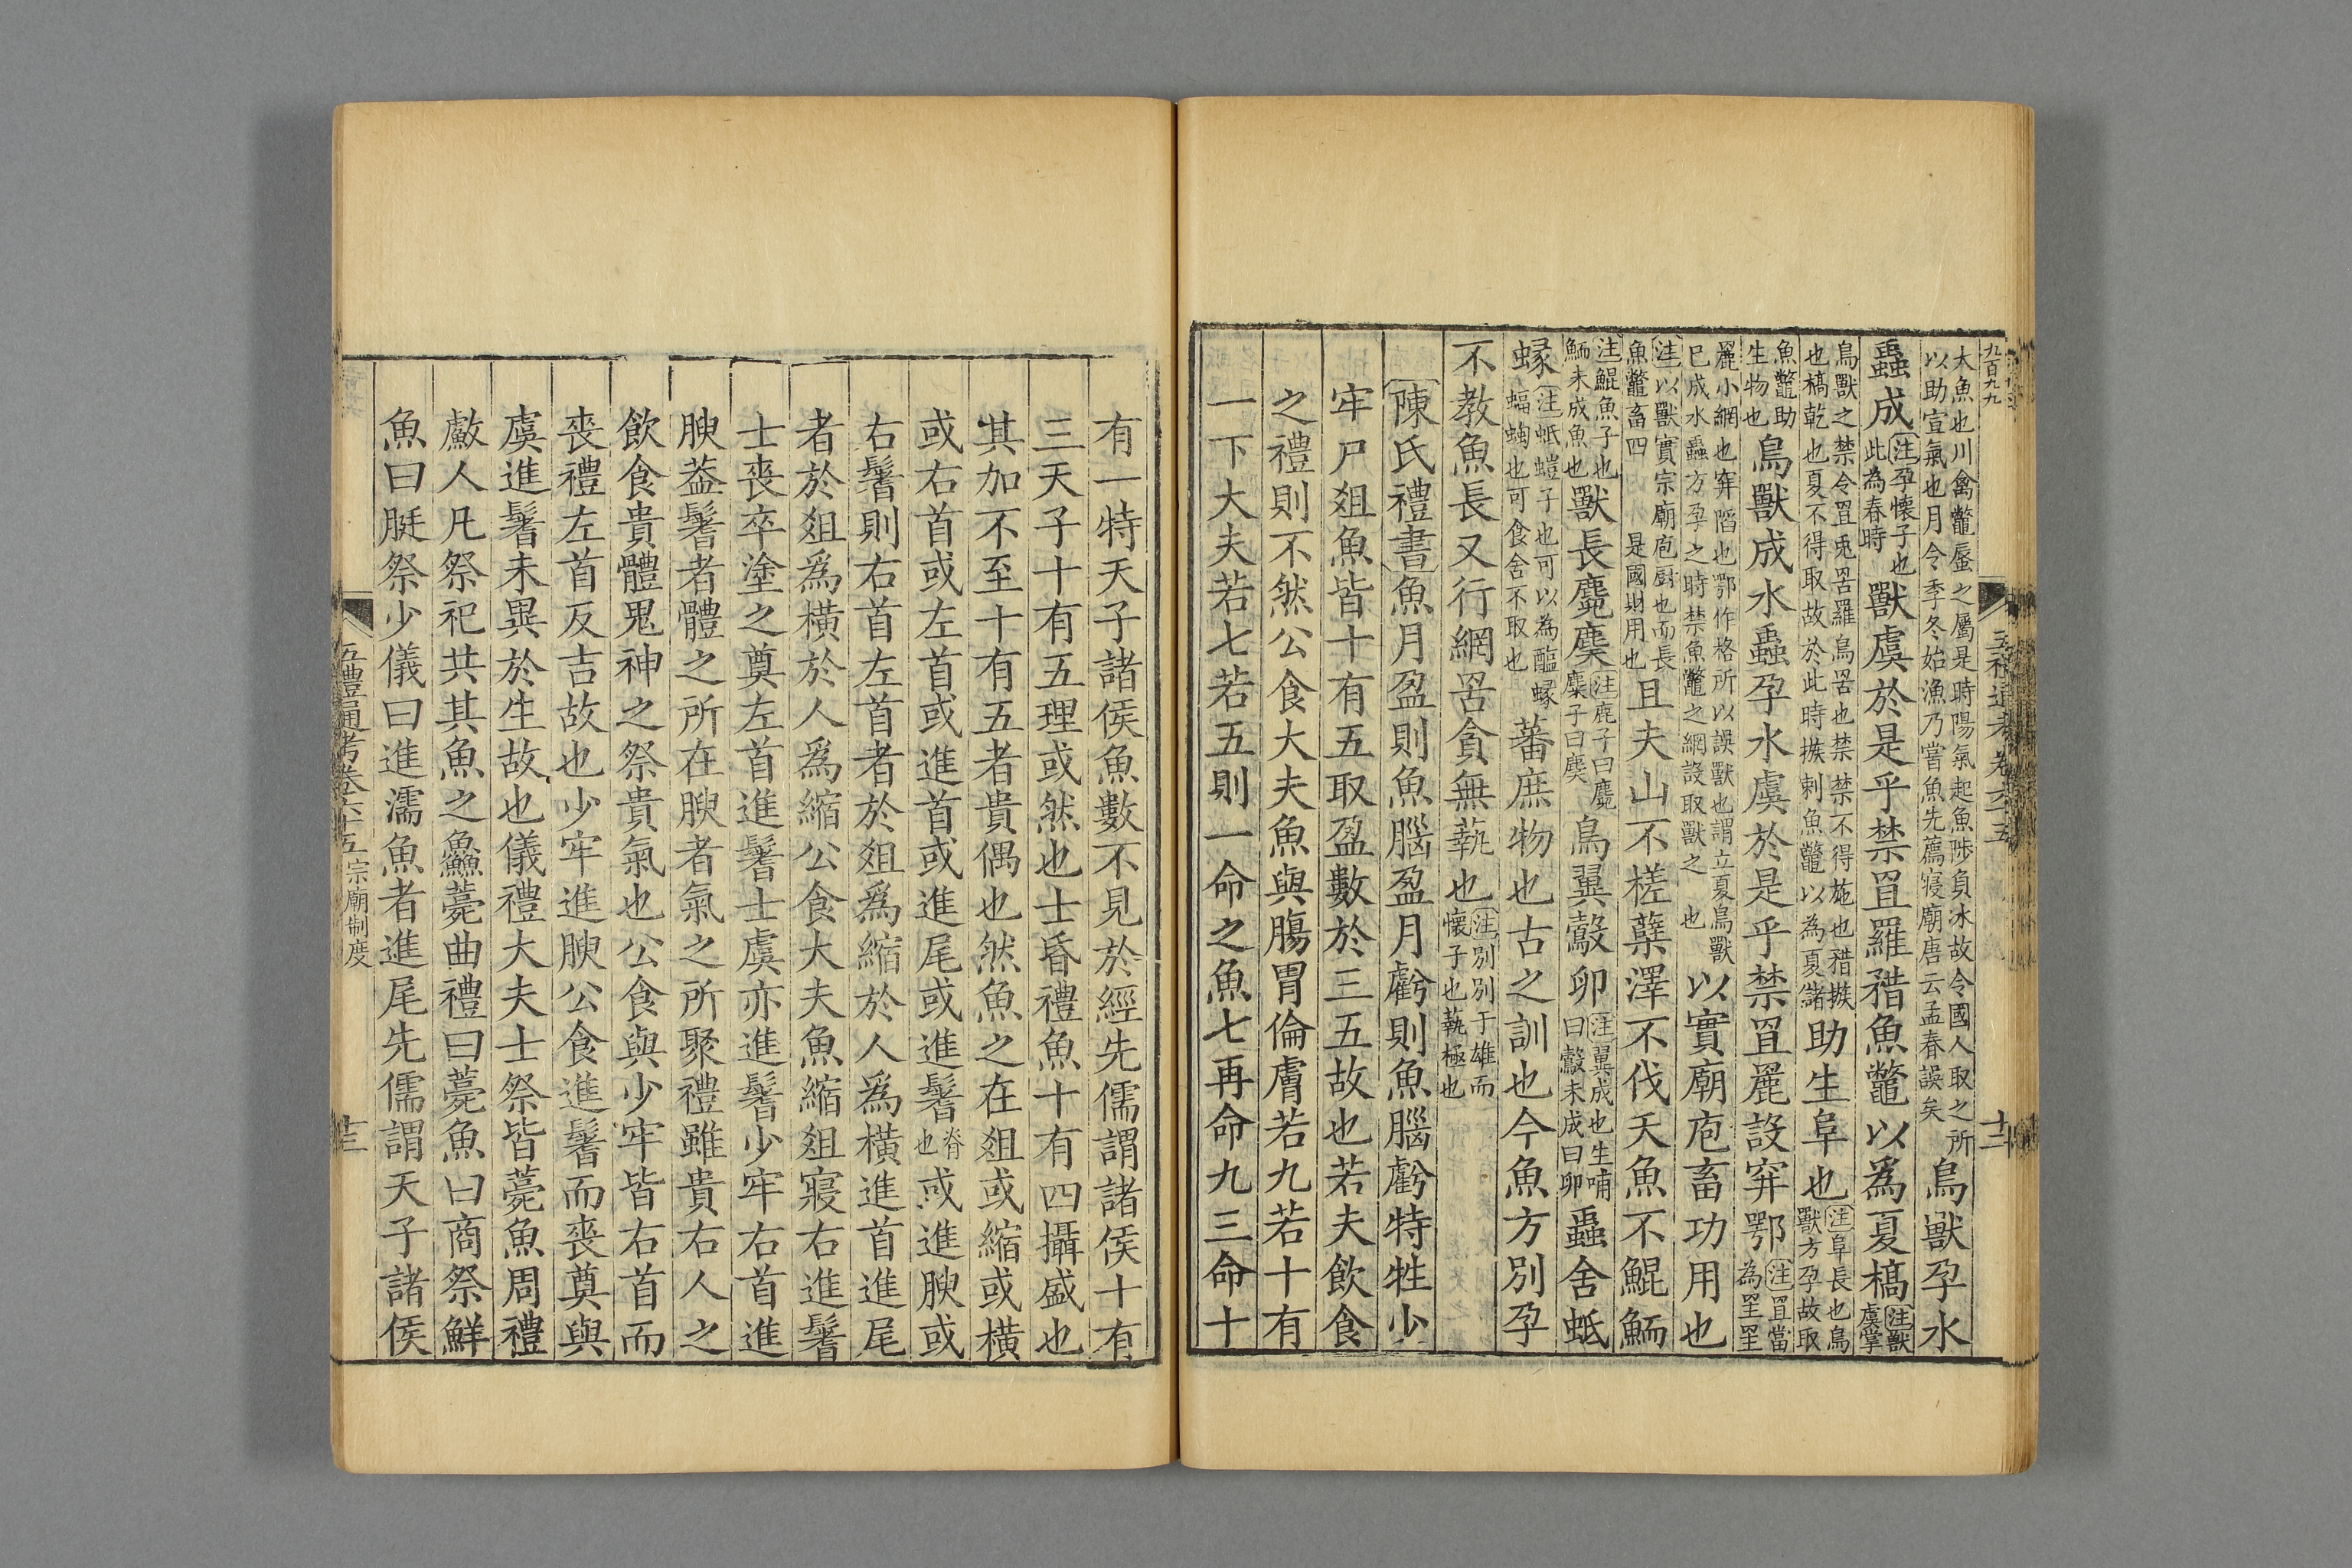 大魚也川禽鼈蜃之屬是時陽氣起魚陟負冰故令國人取之所
以助宣氣也月令季冬始漁乃嘗魚先薦寢廟唐云孟春誤矣
鳥獸孕水
蟲成
注孕懷子也
此為春時
獸虞於是乎禁罝羅矠魚鼈以爲夏槁
注獸
虞掌
鳥獸之禁令罝兎罟羅鳥罟也禁禁不得施也矠㩍
也槁乾也夏不得取故於此時㩍刺魚鼈以為夏儲
助生阜也
注阜長也鳥
獸方孕故取
魚鼈助
生物也
鳥獸成水蟲孕水虞於是乎禁罝麗設穽鄂
注罝當
為罜罜
麗小網也穽陷也鄂作格所以誤獸也謂立夏鳥獸
已成水蟲方孕之時禁魚鼈之網設取獸之 也
以實廟庖畜功用也
注以獸實宗廟庖厨也而長
魚鼈畜四 是國財用也
且夫山不槎蘖澤不伐夭魚不鯤鮞
注鯤魚子也
鮞未成魚也
獸長麑䴠
注鹿子曰麑
麋子曰䴠
鳥翼鷇卵
注翼成也生哺
曰鷇未成曰卵
蟲舍蚳
蝝
注蚳螘子也可以為醢蝝
蝠蜪也可食舍不取也
蕃庶物也古之訓也今魚方別孕
不教魚長又行網罟貪無蓺也
注別別于雄而
懷子也蓺極也
陳氏禮書魚月盈則魚腦盈月虧則魚腦虧特牲少
牢尸俎魚皆十有五取盈數於三五故也若夫飲食
之禮則不然公食大夫魚與腸胃倫膚若九若十有
一下大夫若七若五則一命之魚七再命九三命十
有一特天子諸侯魚數不見於經先儒謂諸侯十有
三天子十有五理或然也士昏禮魚十有四攝盛也
其加不至十有五者貴偶也然魚之在俎或縮或橫
或右首或左首或進首或進尾或進鬐
脊
也
或進腴或
右鬐則右首左首者於俎爲縮於人爲橫進首進尾
者於俎爲橫於人爲縮公食大夫魚縮俎寢右進鬐
士喪卒塗之奠左首進鬐士虞亦進鬐少牢右首進
腴葢鬐者體之所在腴者氣之所聚禮雖貴右人之
飲食貴體鬼神之祭貴氣也公食與少牢皆右首而
喪禮左首反吉故也少牢進腴公食進鬐而喪奠與
虞進鬐未異於生故也儀禮大夫士祭皆薧魚周禮
䱷人凡祭祀共其魚之鱻薧曲禮曰薧魚曰商祭鮮
魚曰脡祭少儀曰進濡魚者進尾先儒謂天子諸侯
五禮通考卷六十五
宗廟制度
十三